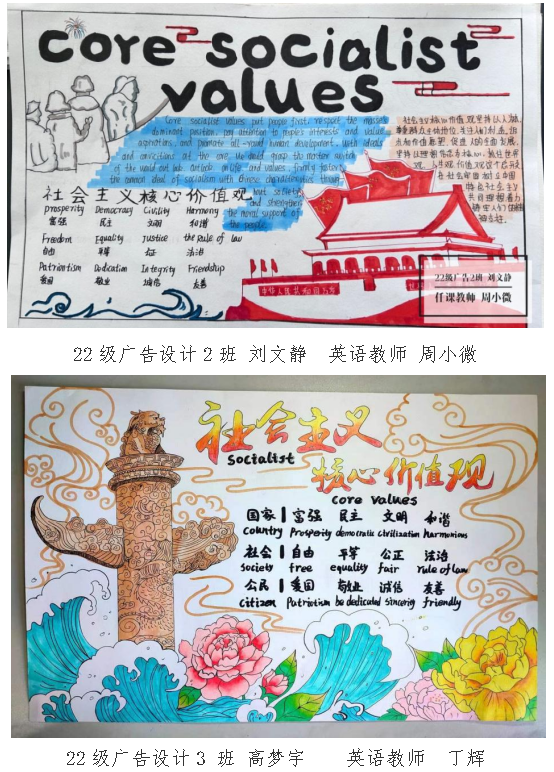 core socialist
values
Core socialist values put people first, respect the masses
dominant position, pay attention to people's interests and value
aspirations, and promote all-round human development, with ideals
and convictions at the core, the
of the world out look, outlook on life and values, firmly
the common ideal of socialism with Chinese characteristics
society
and strengthen
the moral support of
the people.
社会主义核心价值观坚持以人为本
社会主义核心价值观
prosperity Democracy Civility Harmony
富强 民主 文明 和谐
Freedom Equality justice the Rule of law
自由 平等 公正 法治
Patriotism Dedication Integrity Friendship
爱国 敬业 诚信 友善
中华人民共和国万岁
22级广告2班 刘文静
任课教师 周小微
22级广告设计2班 刘文静 英语教师 周小微
社会主义
Socialist
核心价值观
core values
国家 富强 民主 文明 和谐
Country Prosperity democratic civilization Harmonious
社会 自由 平等 公正 法治
society free equality fair rule of law
公民 爱国 敬业 诚信 友善
citizen Patriotism be dedicated sincerity friendly
22级广告设计3 班 高梦宇 英语教师 丁辉